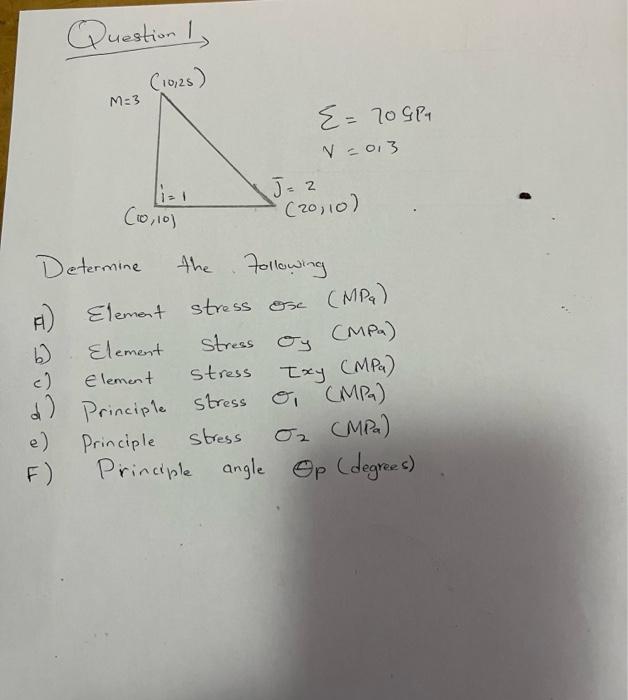 Question 1
(10,25)
M=3
Σ = 70 GPa
V = 0,3
i=1
J=2
(10,10)
(20,10)
Determine the following
A) Element stress σx (MPa)
b) Element stress σy (MPa)
c) element stress τxy (MPa)
d) Principle stress σ1 (MPa)
e) Principle stress σ2 (MPa)
F) Principle angle θp (degrees)